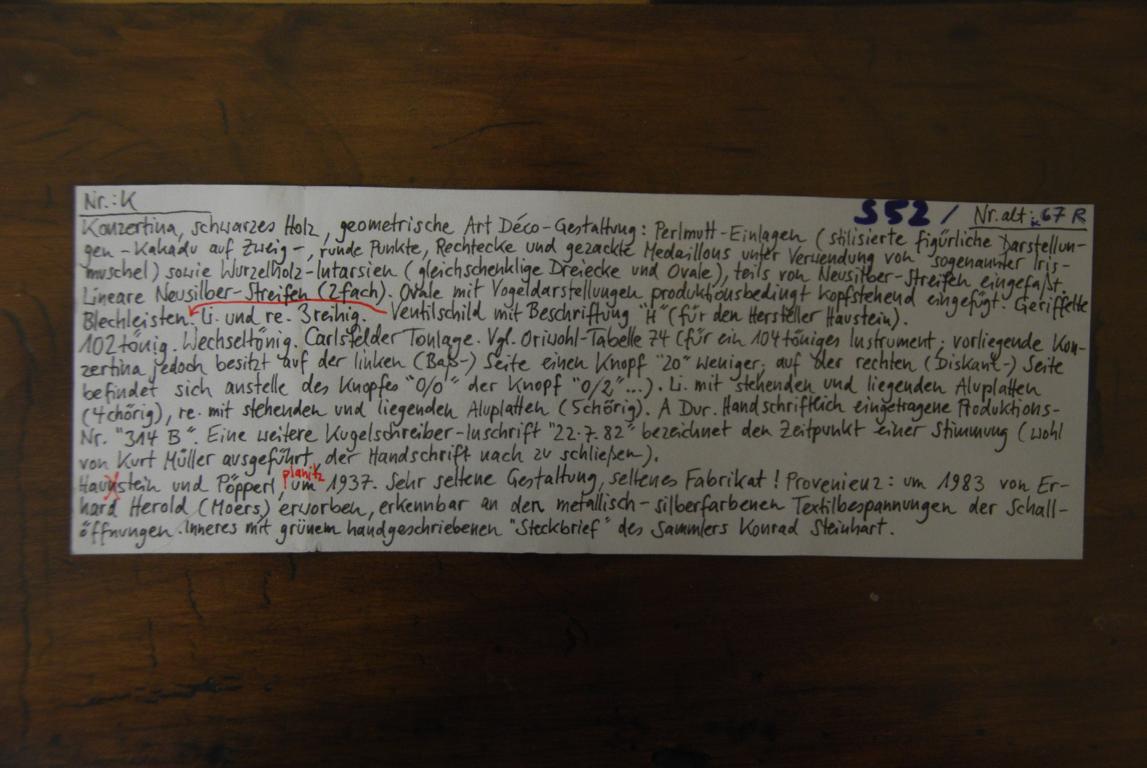 Nr.: K
S52 / Nr. alt: K 67 R
Konzertina, schwarzes Holz, geometrische Art Déco-Gestaltung: Perlmutt-Einlagen (stilisierte figürliche Darstellun-
gen - Kakadu auf Zweig -, runde Punkte, Rechtecke und gezackte Medaillons unter Verwendung von sogenannter Iris-
muschel) sowie Wurzelholz-Intarsien (gleichschenklige Dreiecke und Ovale), teils von Neusilber-Streifen eingefaßt.
Lineare Neusilber-Streifen (2fach). Ovale mit Vogeldarstellungen produktionsbedingt kopfstehend eingefügt. Geriffelte
Blechleisten. Li. und re. 3reihig. Ventilschild mit Beschriftung "H" (für den Hersteller Haustein).
102tönig. Wechseltönig. Carlsfelder Tonlage. Vgl. Oriwohl-Tabelle 74 (für ein 104töniges Instrument; vorliegende Kon-
zertina jedoch besitzt auf der linken (Baß-) Seite einen Knopf "20" weniger; auf der rechten (Diskant-) Seite
befindet sich anstelle des Knopfes "0/0" der Knopf "0/2"...). Li. mit stehenden und liegenden Aluplatten
(4chörig), re. mit stehenden und liegenden Aluplatten (5chörig). A Dur. Handschriftlich eingetragene Produktions-
Nr. "314 B". Eine weitere Kugelschreiber-Inschrift "22.7.82" bezeichnet den Zeitpunkt einer Stimmung (wohl
von Kurt Müller ausgeführt, der Handschrift nach zu schließen).
planitz
Haunstein und Pöpperl, um 1937. Sehr seltene Gestaltung, seltenes Fabrikat! Provenienz: um 1983 von Er-
hard Herold (Moers) erworben, erkennbar an den metallisch-silberfarbenen Textilbespannungen der Schall-
öffnungen. Inneres mit grünem handgeschriebenen "Steckbrief" des Sammlers Konrad Steinhart.